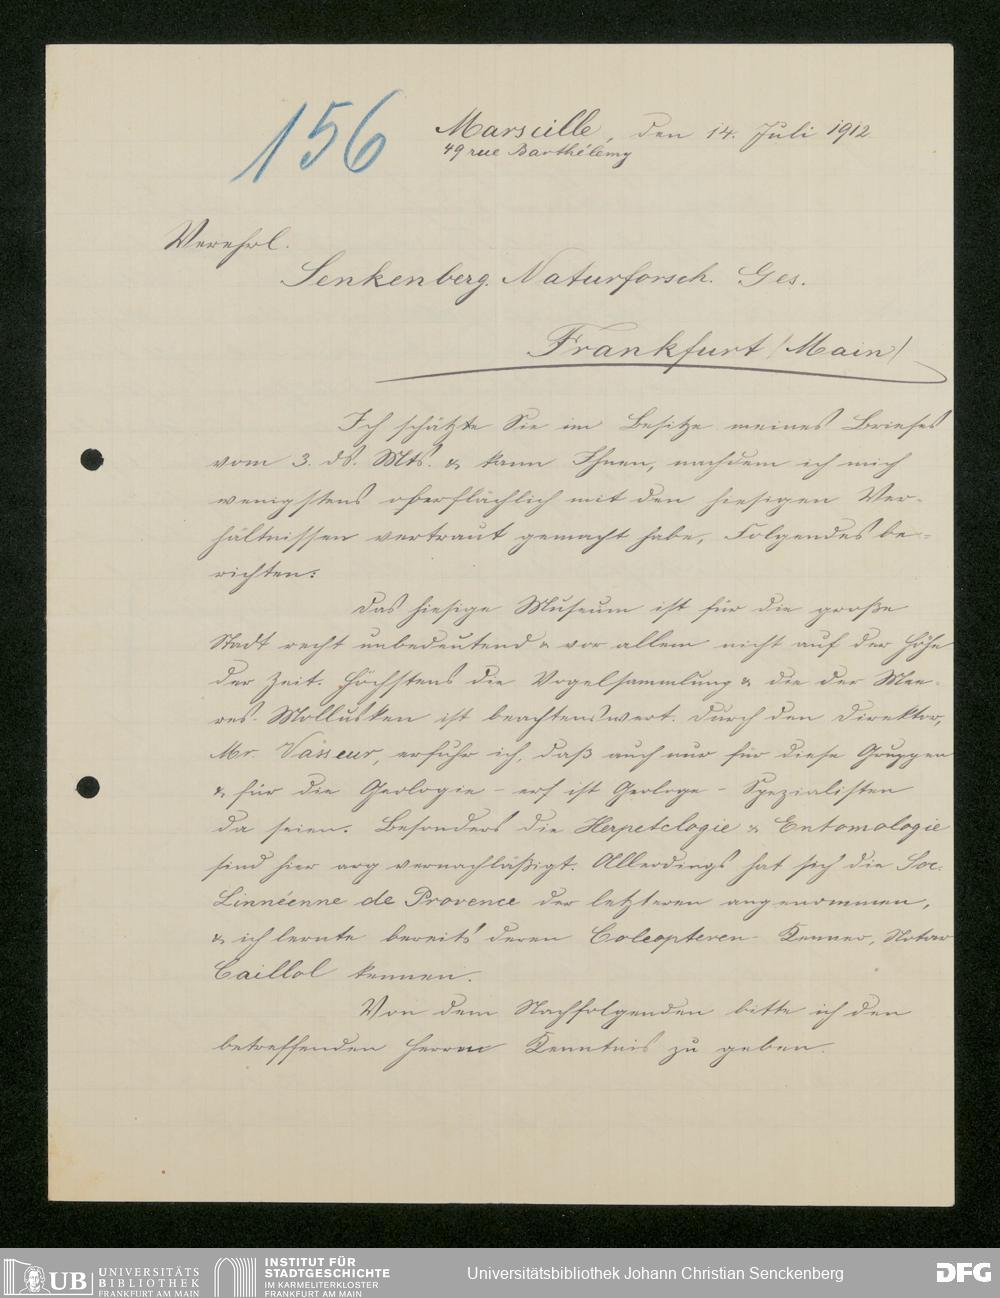 156
Marseille, den 14. Juli 1912
49 rue Barthélémy
Verehrl.
Senkenberg. Naturforsch. Ges.
Frankfurt /Main/
Ich schätzte Sie im Besitze meines Briefes
vom 3. ds. Mts. & kann Ihnen, nachdem ich mich
wenigstens oberflächlich mit den hiesigen Ver-
hältnissen vertraut gemacht habe, Folgendes be-
richten:
Das hiesige Museum ist für die große
Stadt recht unbedeutend & vor allem nicht auf der Höhe
der Zeit. Höchstens die Vogelsammlung & die der Mee-
res-Mollusken ist beachtenswert. Durch den Direktor,
Mr. Vasseur, erfuhr ich, daß auch nur für diese Gruppen
& für die Geologie - er ist Geologe - Spezialisten
da seien. Besonders die Herpetologie & Entomologie
sind hier arg vernachläßigt. Allerdings hat sich die Soc.
Linnéenne de Provence der letzteren angenommen,
& ich lernte bereits deren Coleopteren-Kenner, Notar
Caillol kennen.
Von dem Nachfolgenden bitte ich den
betreffenden Herren Kenntnis zu geben.
UB UNIVERSITÄTS
BIBLIOTHEK
FRANKFURT AM MAIN
INSTITUT FÜR
STADTGESCHICHTE
IM KARMELITERKLOSTER
FRANKFURT AM MAIN
Universitätsbibliothek Johann Christian Senckenberg
DFG